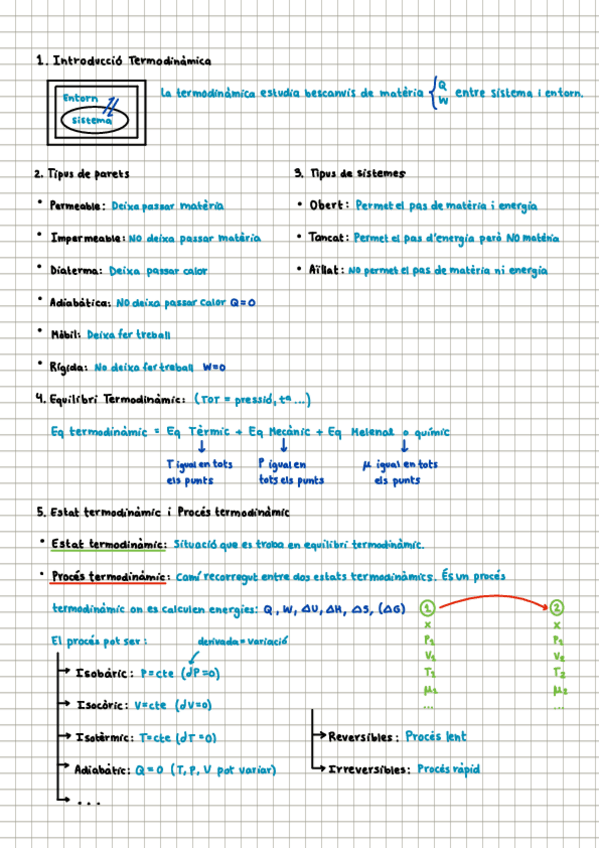 1. Introducció Termodinàmica
Entorn
sistema
La termodinàmica estudia bescanvis de matèria { Q W entre sistema i entorn.
2. Tipus de parets
• Permeable: Deixa passar matèria
• Impermeable: NO deixa passar matèria
• Diaterma: Deixa passar calor
• Adiabàtica: NO deixa passar calor Q=0
• Mòbil: Deixa fer treball
• Rígida: No deixa fer treball W=0
3. Tipus de sistemes
• Obert: Permet el pas de matèria i energia
• Tancat: Permet el pas d'energia però NO matèria
• Aïllat: NO permet el pas de matèria ni energia
4. Equilibri Termodinàmic: (TOT = pressió, tª...)
Eq termodinàmic = Eq Tèrmic + Eq Mecànic + Eq Material o químic
T igual en tots
els punts
P igual en
tots els punts
μ igual en tots
els punts
5. Estat termodinàmic i Procés termodinàmic
• Estat termodinàmic: Situació que es troba en equilibri termodinàmic.
• Procés termodinàmic: Camí recorregut entre dos estats termodinàmics. És un procés
termodinàmic on es calculen energies: Q, W, ΔU, ΔH, ΔS, (ΔG)
1
x
P₁
V₁
T₁
μ₁
...
2
x
V₂
T₂
μ₂
...
El procés pot ser:
derivada = variació
Isobàric: P=cte (dP=0)
Isocòric: V=cte (dV=0)
Isotèrmic: T=cte (dT=0)
Adiabàtic: Q=0 (T, P, V pot variar)
...
Reversibles: Procés lent
Irreversibles: Procés ràpid